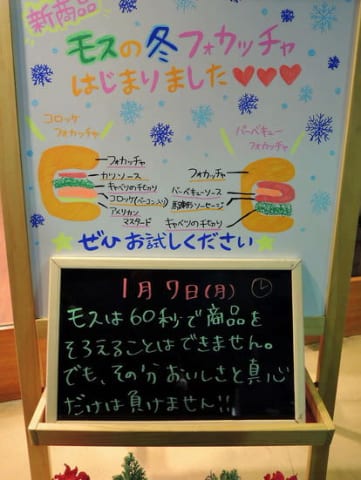 新商品
モスの冬フォカッチャ
はじまりました♥♥♥
コロッケ
フォカッチャ
バーベキュー
フォカッチャ
フォカッチャ
カツソース
キャベツの千切り
コロッケ(ベーコン入り)
アメリカン
マスタード
フォカッチャ
バーベキューソース
ソーセージ
キャベツの千切り
★ぜひお試しください★
1月7日(月)
モスは60秒で商品を
そろえることはできません。
でも、その分おいしさと真心
だけは負けません!!